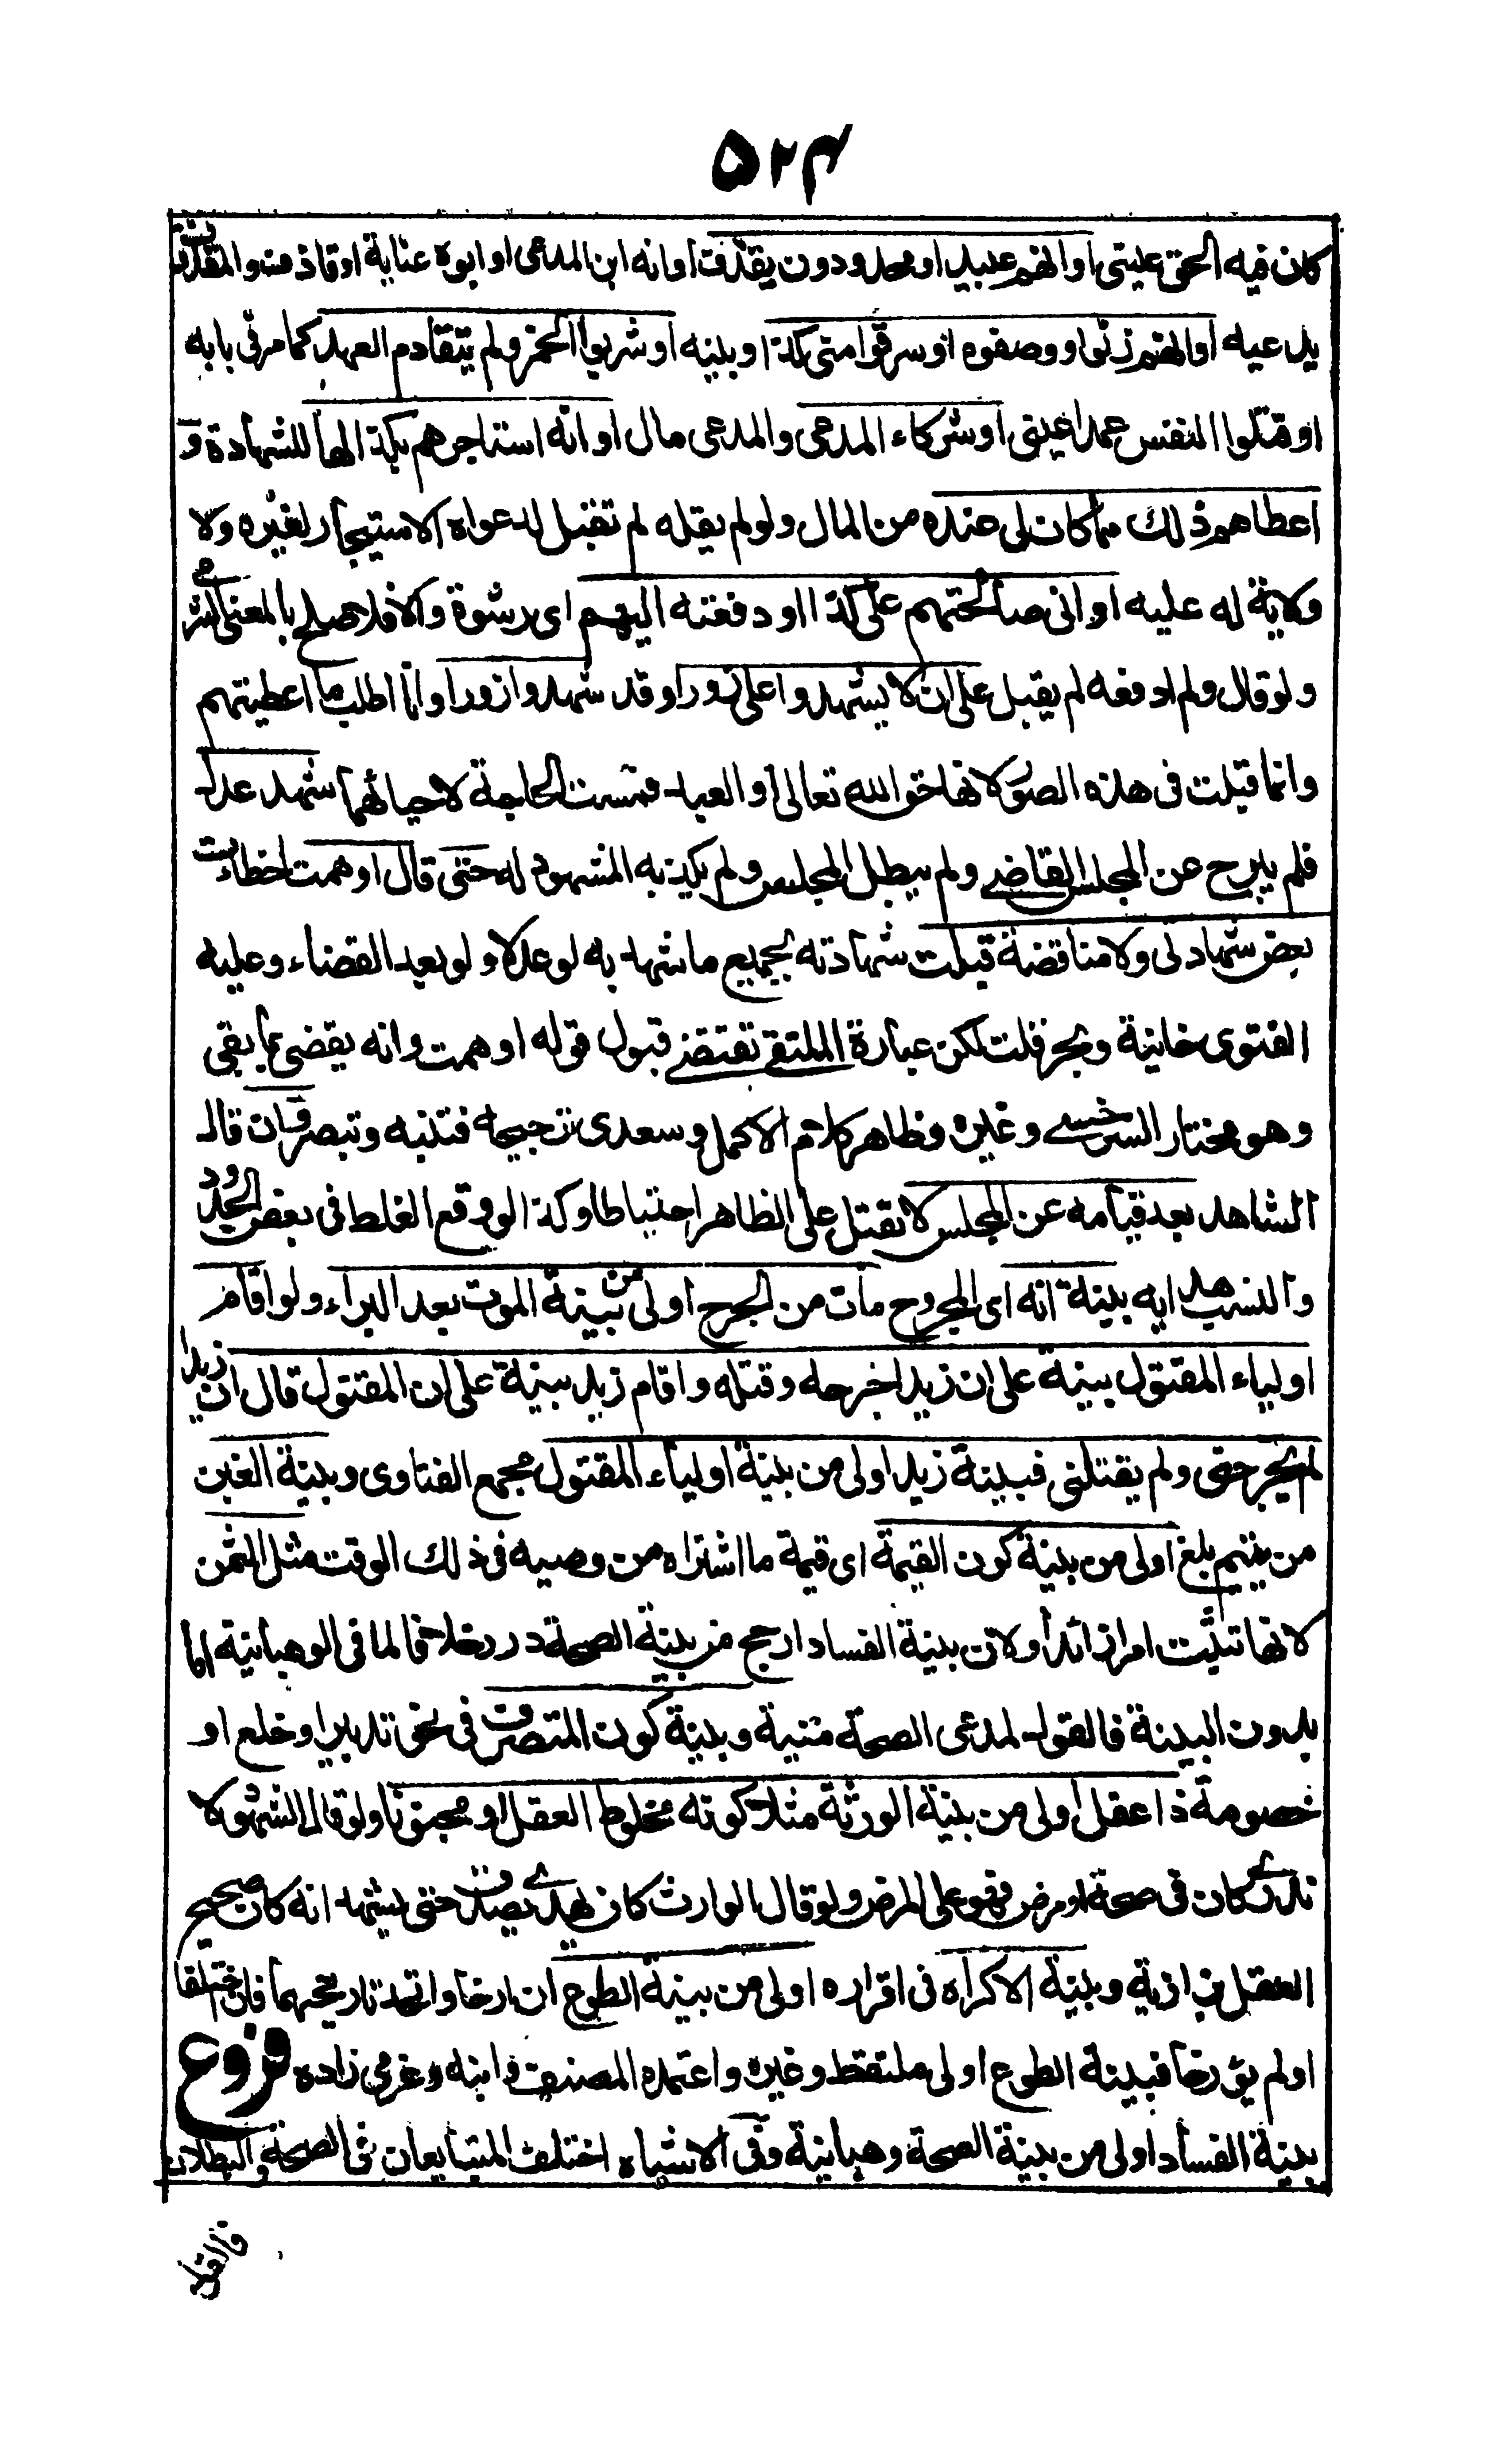 ۵۲۴
كان فيه الحق عينى او انهم عبيد او محدودون بقذف او انه ابن المدعى او ابوه عناية او قاذف والمقذوف
يدعيه او انهم زنوا ووصفوه او سرقوا منى كذا وبينه او شربوا الخمر ولم يتقادم العهد كما مر فى بابه
او قتلوا النفس عمدا عينى او شركاء المدعى والمدعى مال او انه استاجرهم بكذا لها للشهادة و
اعطاهم ذلك مما كان لى عنده من المال ولو لم يقله لم تقبل لدعواه الاستيجار لغيره ولا
ولاية له عليه او انى صالحتهم على كذا او دفعته اليهم اى رشوة والا فلا صلح بالمعنى الشرعى
ولو قال ولم ادفعه لم يقبل على ان لا يشهدوا على زورا وقد شهدوا زورا وانا اطلب ما اعطيتهم
وانما قبلت فى هذه الصور لانها حق الله تعالى او العبد فمست الحاجة لاحيائهما شهد عدل
فلم يبرح عن المجلس القاضى ولم يبطل المجلس ولم يكذبه المشهود له حتى قال اوهمت اخطاءت
بعض شهادتى ولا مناقضة قبلت شهادته بجميع ما شهد به لو عدلا ولو بعد القضاء وعليه
الفتوى خانية وبحر قلت لكن عبارة الملتقى تقتضى قبول قوله اوهمت وانه يقضى بما بقى
وهو مختار السرخسى وغيره وظاهر كلام الاكمل وسعدى ترجيحه فتنبه وتبصر وان قال
الشاهد بعد قيامه عن المجلس لا تقبل على الظاهر احتياطا وكذا لو وقع الغلط فى بعض الحدود
والنسب هدايه بينة انه اى المجروح مات من الجرح اولى من بينة الموت بعد البراء ولو اقام
اولياء المقتول بينة على ان زيدا جرحه وقتله واقام زيد بينة على ان المقتول قال ان زيدا
لم يجرحنى ولم يقتلنى فبينة زيد اولى من بينة اولياء المقتول مجمع الفتاوى وبينة الغبن
من يتيم بلغ اولى من بينة كون القيمة اى قيمة ما اشتراه من وصيه فى ذلك الوقت مثل الثمن
لانها تثبت امرا زائدا ولان بينة الفساد ارجح من بينة الصحة درر خلافا لما فى الوهبانية اما
بدون البينة فالقول لمدعى الصحة منية وبينة كون المتصرف فى نحو تدبير او خلع او
خصومة ذا عقل اولى من بينة الورثة مثلا كونه مخلوط العقل او مجنونا ولو قال الشهود لا
ندرى كان فى صحة او مرض فهو على المرض ولو قال الوارث كان يهذى يصدق حتى يشهدا انه كان صحيح
العقل بزازية وبينة الاكراه فى اقراره اولى من بينة الطوع ان ارخا واتحد تاريخهما فان اختلفا
او لم يؤرخا فبينة الطوع اولى ملتقط وغيره واعتمده المصنف وابنه وعزمى زاده فروع
بينة الفساد اولى من بينة الصحة وهبانية وفى الاشباه اختلف المتبايعان فى الصحة والبطلان
فالقول